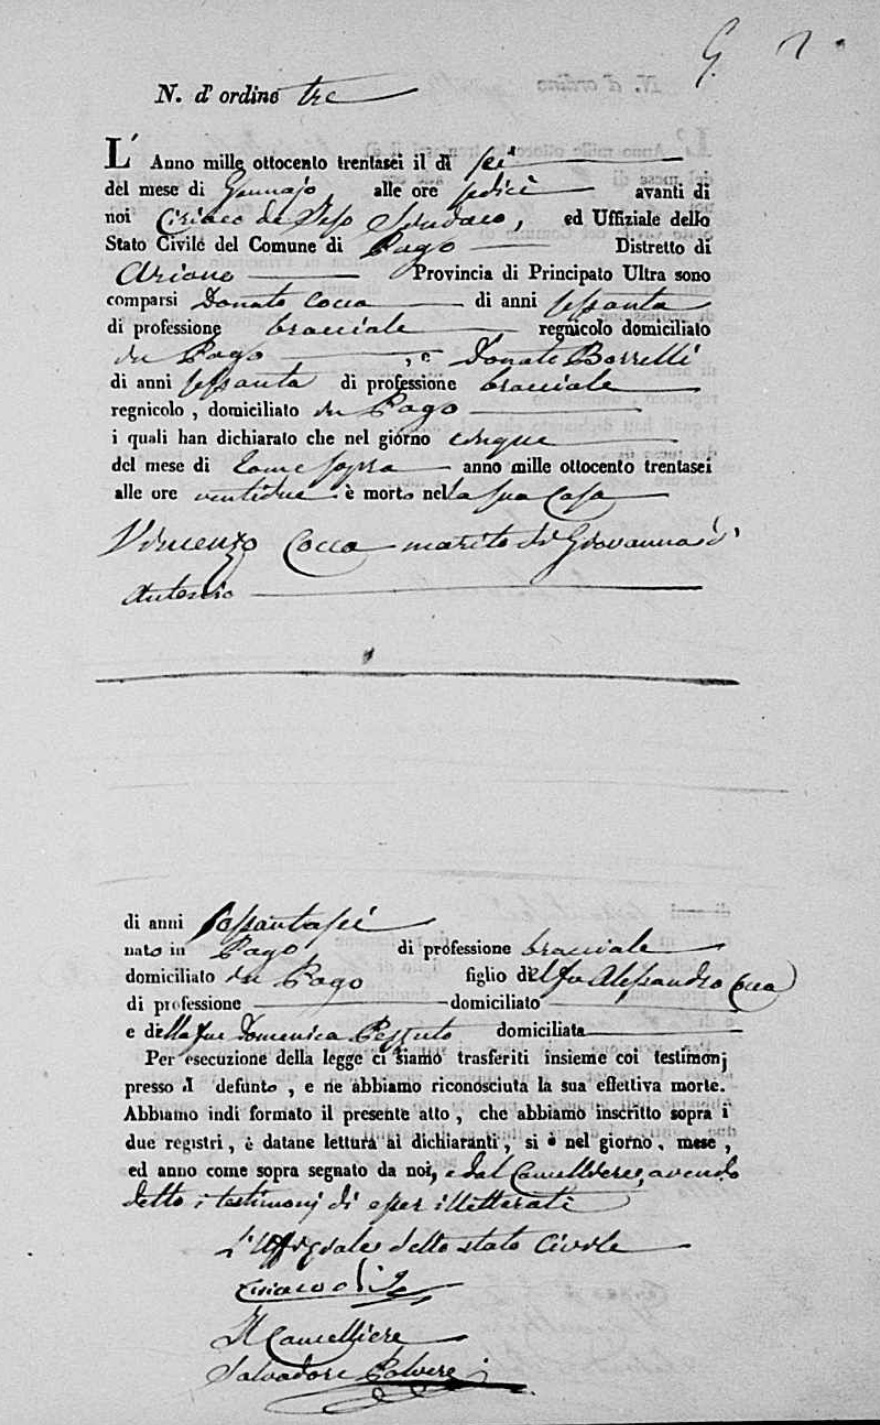 N. d' ordine tre
L' Anno mille ottocento trentasei il dì sei
del mese di Gennajo alle ore sedici avanti di
noi Ciriaco de Sindaco, ed Uffiziale dello
Stato Civile del Comune di Pago Distretto di
Ariano Provincia di Principato Ultra sono
comparsi Donato Cocca di anni sessanta
di professione bracciale regnicolo domiciliato
in Pago , e Donato Borrelli
di anni sessanta di professione bracciale
regnicolo , domiciliato in Pago
i quali han dichiarato che nel giorno cinque
del mese di come sopra anno mille ottocento trentasei
alle ore ventidue è morto nella sua Casa
Vincenzo Cocca marito di Giovanna d'
Antonio
di anni sessantasei
nato in Pago di professione bracciale
domiciliato in Pago figlio del fu Alessandro Cocca
di professione domiciliato
e della fu Domenica domiciliata
Per esecuzione della legge ci siamo trasferiti insieme coi testimonj
presso il defunto , e ne abbiamo riconosciuta la sua effettiva morte.
Abbiamo indi formato il presente atto , che abbiamo inscritto sopra i
due registri , è datane lettura ai dichiaranti , si è nel giorno , mese ,
ed anno come sopra segnato da noi, e dal Cancelliere, avendo
detto i testimonj di esser illetterati
L'Uffiziale dello stato Civile
Ciriaco
Il Cancelliere
Salvadore Polvere